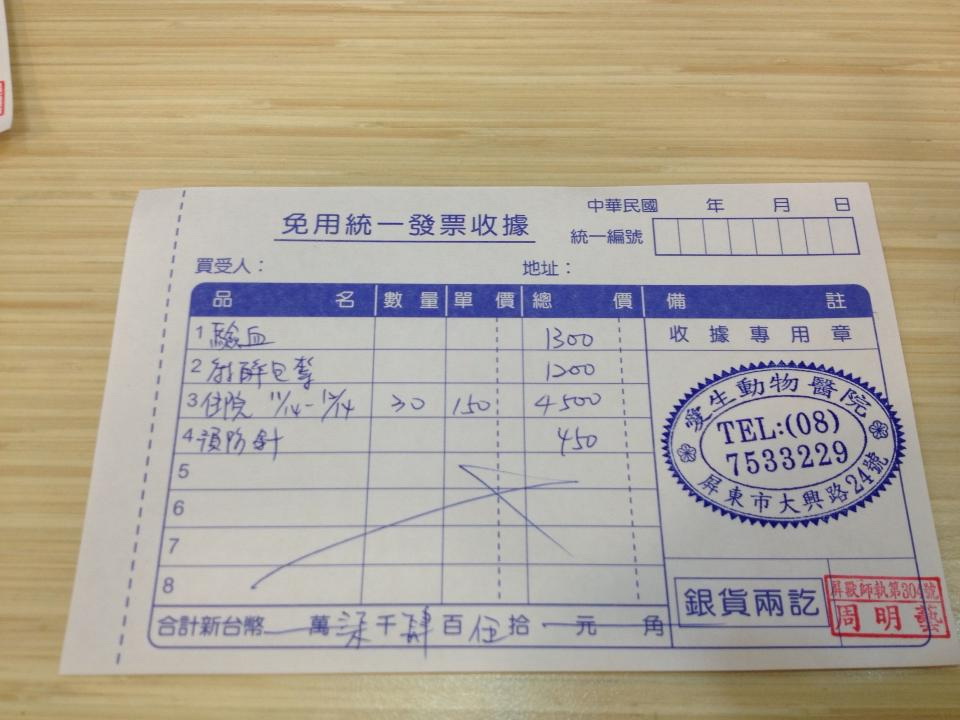 中華民國 年 月 日
免用統一發票收據
統一編號
買受人：
地址：
品名 數量 單價 總價 備註
1 驗血 1300
收據專用章
2 包紮 1200
3 住院 11/14-12/14 30 150 4500
4 預防針 450
愛生動物醫院
TEL:(08)
7533229
屏東市大興路24號
5
6
7
8
合計新台幣 萬 柒 千 肆 百 伍 拾 元 角
銀貨兩訖
屏獸師執第304號
周明藝